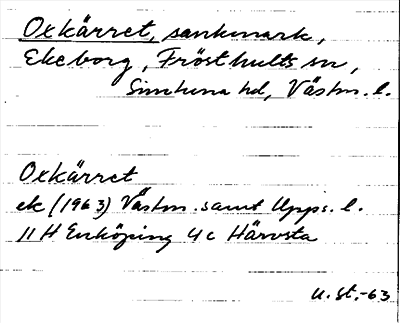 Oxkärret, sankmark,
Ekeborg, Frösthults sn,
Simtuna hd, Västm. l.
Oxkärret
ek (1963) Västm. samt Upps. l.
11 H Enköping 4 c Härvsta
U. St. -63